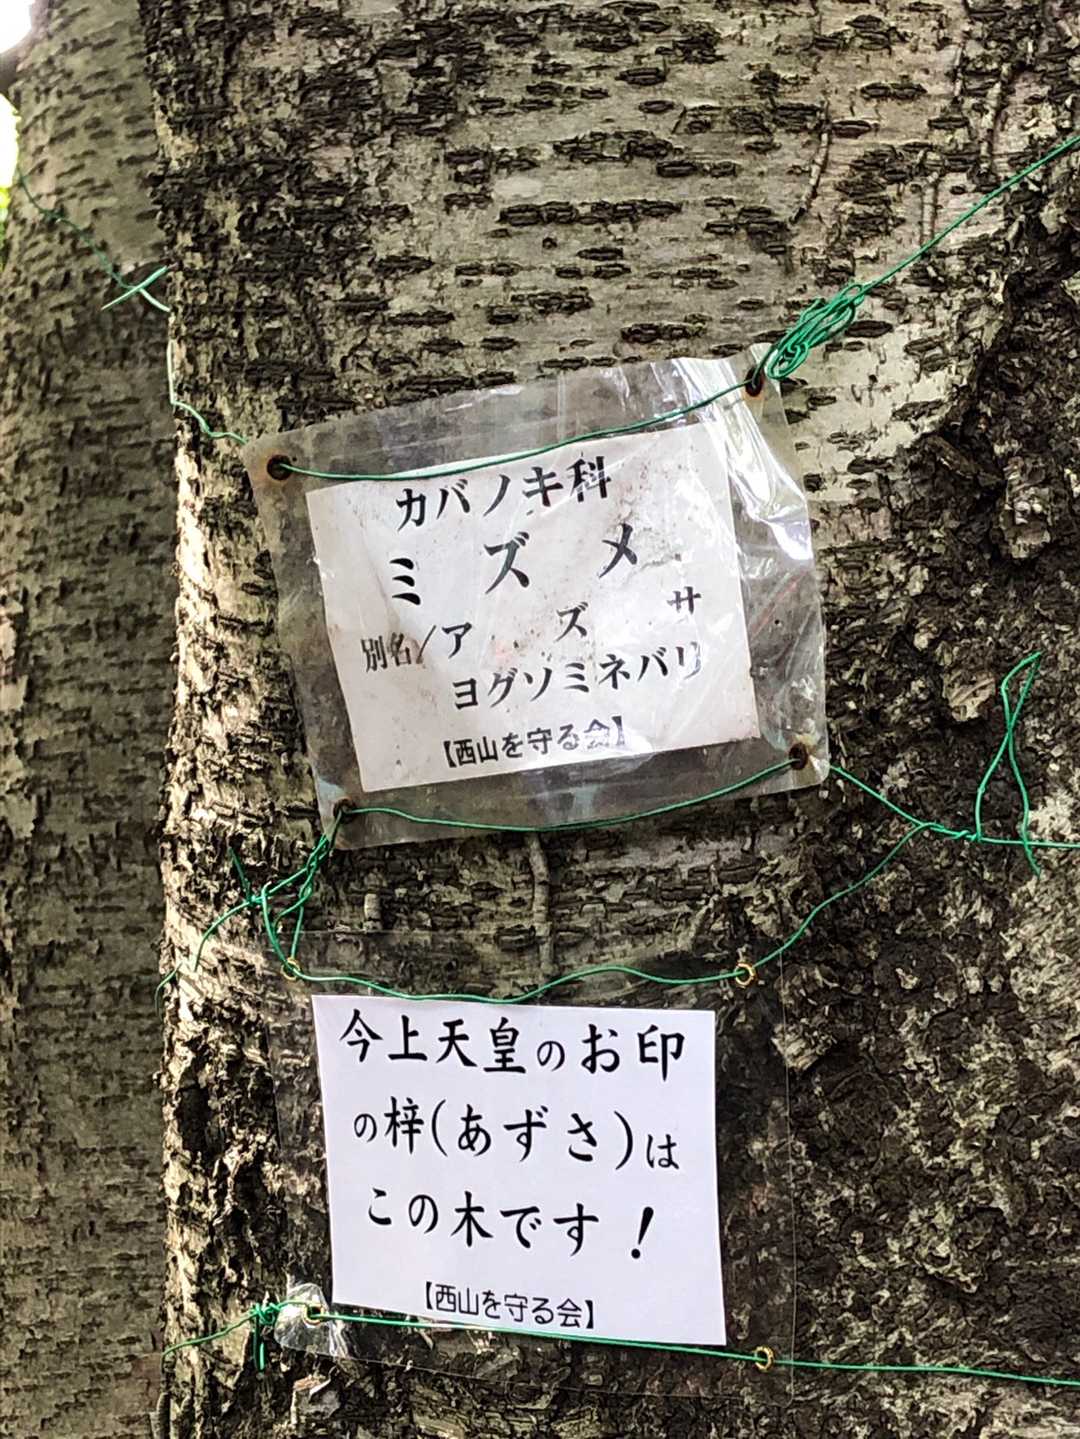 カバノキ科
ミズメ
別名/アズサ
ヨグソミネバリ
【西山を守る会】
今上天皇のお印
の梓(あずさ)は
この木です！
【西山を守る会】